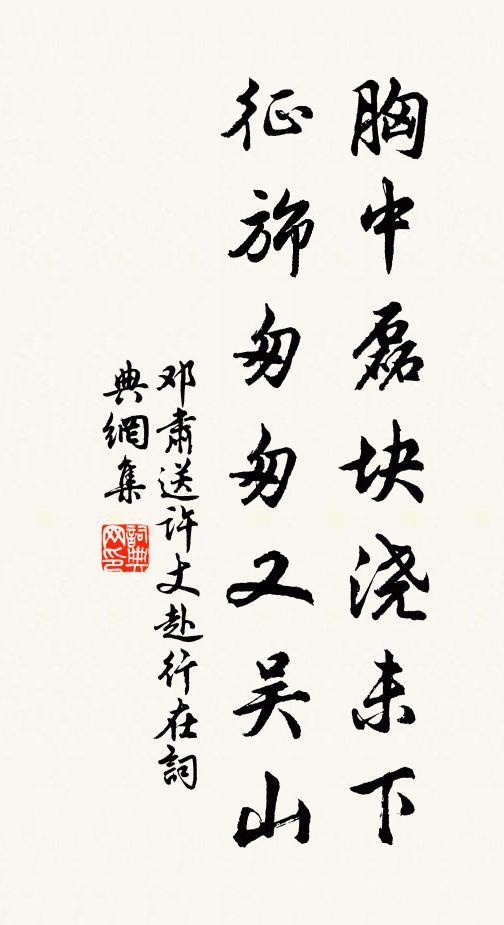 胸中磊块浇未下
征旆匆匆又吴山
邓肃送许丈赴行在詞
典網集
詞典网印